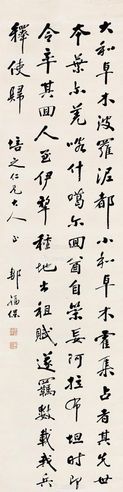 大和卓木波羅泥都小和卓木霍集占者其先世
本葉尔羌喀什噶尔回酋自策妄阿拉布坦時即
令率其回人至伊犁種地出租賦遂羈數載我兵
釋使歸
培之仁兄大人正
鄒福保